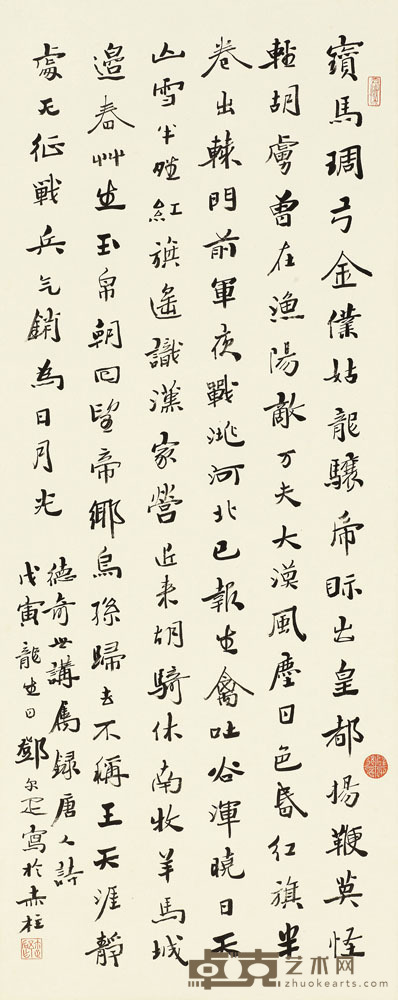 寶馬琱弓金僕姑龍驤虎眎出皇都揚鞭莫怪
輕胡虜曾在漁陽敵万夫大漠風塵日色昏紅旗半
卷出轅門前軍夜戰洮河北已報生禽吐谷渾曉日天
山雪半晴紅旗遙識漢家營近来胡騎休南牧羊馬城
邊春艸生玉帛朝回望帝鄉烏孫歸去不稱王天涯靜
處无征戰兵气銷為日月光
德奇世講屬録唐人詩
戊寅龍生日鄧尔疋寫於赤柱
卓克艺术网
www.zhuokearts.com